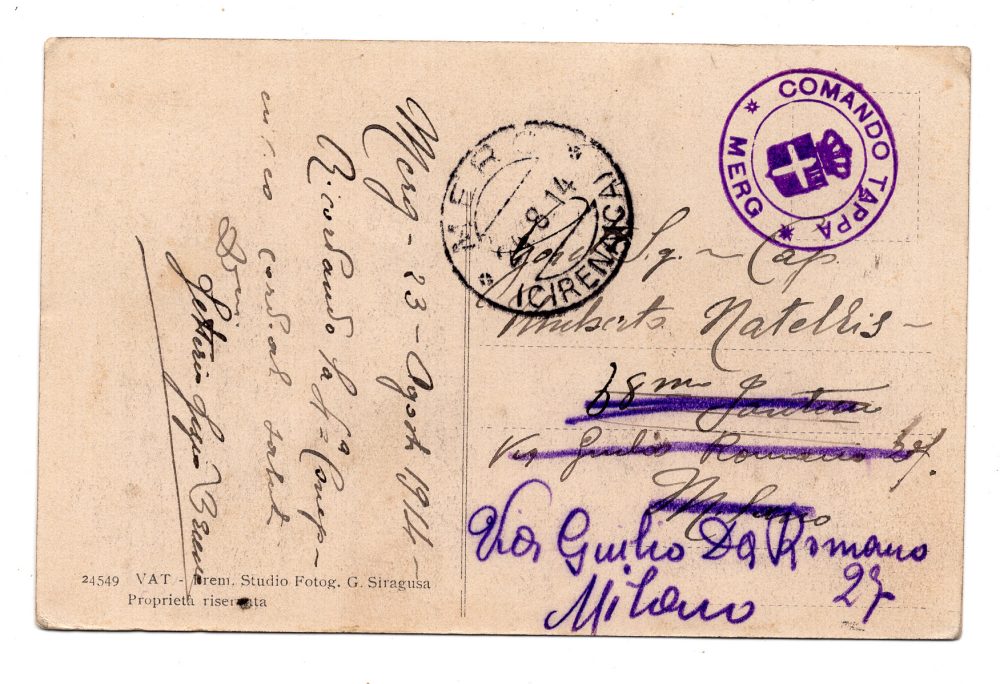 Merg - 23 - Agosto 1914 -
Ricordando la 4ª Comp -
cordiali saluti
MERG
8.14
(CIRENAICA)
COMANDO TAPPA
MERG
Sig - Cap.
Umberto Natellis -
68mo Fanteria
Via Giulio Romano
Milano
Via Giulio Da Romano
27
Milano
24549 VAT - Prem. Studio Fotog. G. Siragusa
Proprietà riservata